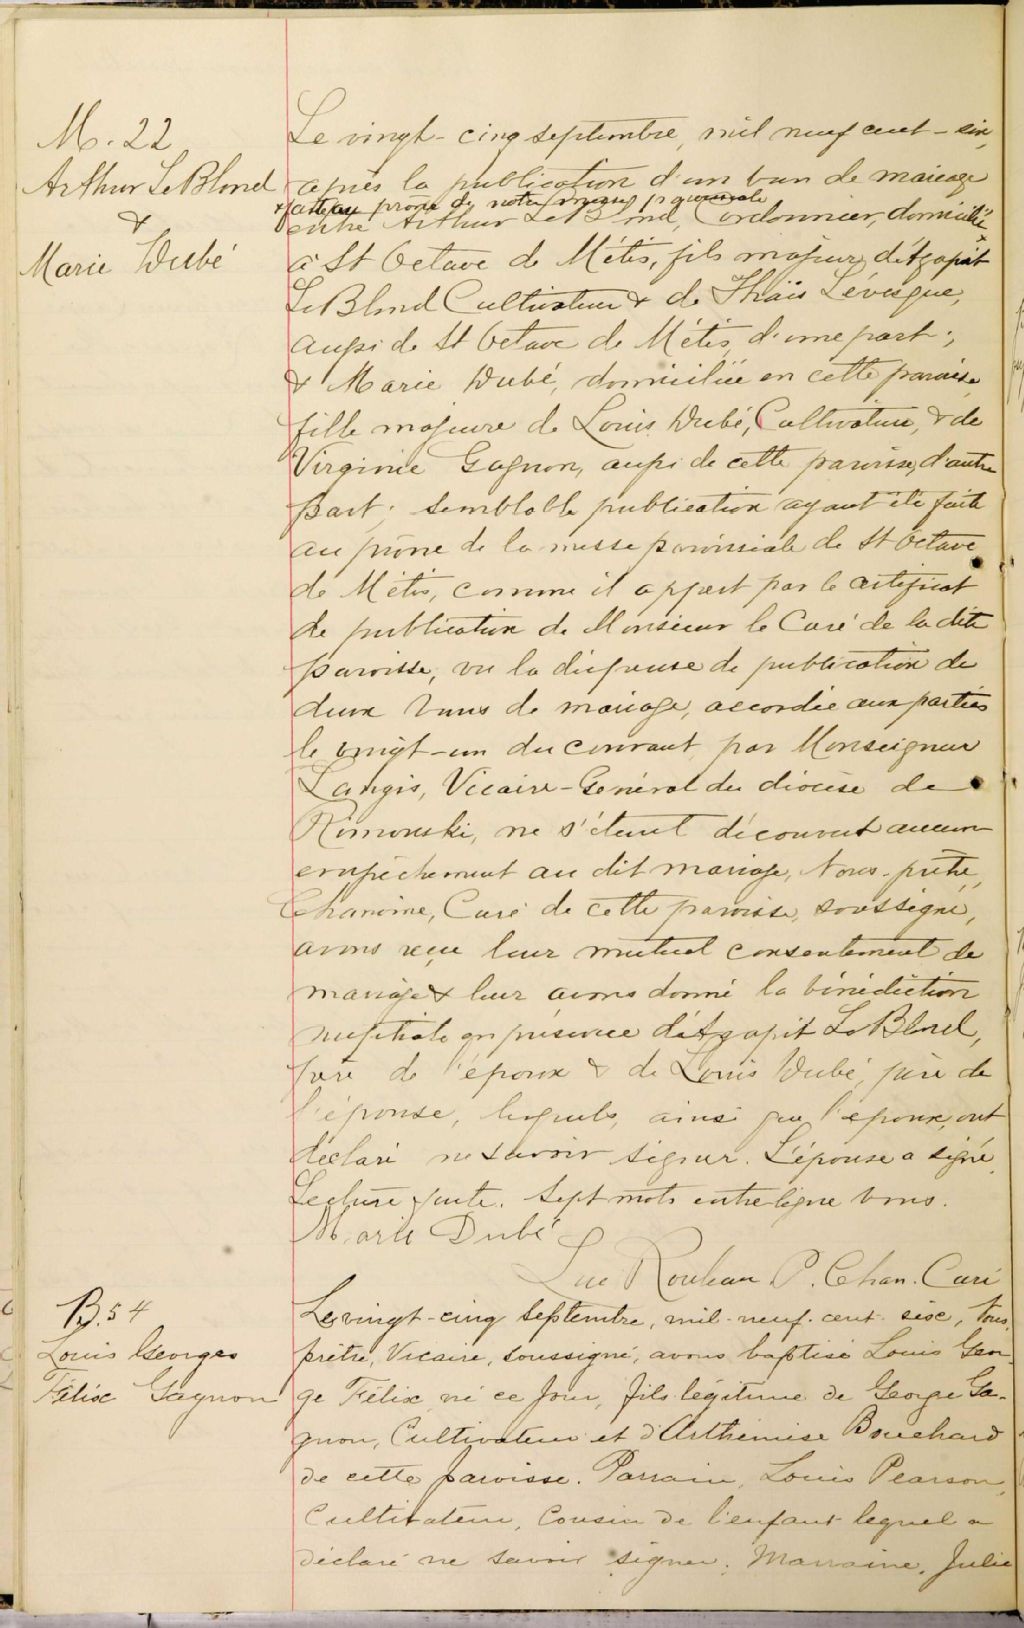 M. 22
Arthur LeBlond
&
Marie Dubé
Le vingt-cinq septembre, mil neuf cent-six,
après la publication d'un ban de mariage
+ faite au prône de notre messe paroissiale
entre Arthur LeBlond, Cordonnier, domicilié
à St Octave de Métis, fils majeur d'Agapit
LeBlond Cultivateur & de Thaïs Lévesque,
aussi de St Octave de Métis, d'une part;
& Marie Dubé, domiciliée en cette paroisse,
fille majeure de Louis Dubé, Cultivateur, & de
Virginie Gagnon, aussi de cette paroisse, d'autre
part; semblable publication ayant été faite
au prône de la messe paroissiale de St Octave
de Métis, comme il appert par le certificat
de publication de Monsieur le Curé de la dite
paroisse, vu la dispense de publication de
deux bans de mariage, accordée aux parties
le vingt-un du courant, par Monseigneur
Langis, Vicaire-Général du diocèse de
Rimouski, ne s'étant découvert aucun
empêchement au dit mariage, Nous, prêtre,
Chanoine, Curé de cette paroisse, soussigné,
avons reçu leur mutuel consentement de
mariage & leur avons donné la bénédiction
nuptiale en présence d'Agapit LeBlond,
père de l'époux & de Louis Dubé, père de
l'épouse, lesquels, ainsi que l'époux, ont
déclaré ne savoir signer. L'épouse a signé.
Lecture faite. Sept mots entre-ligne bons.
Marie Dubé
Luc Rouleau P. Chan. Curé
B. 54
Louis Georges
Félix Gagnon
Le vingt-cinq septembre, mil-neuf-cent-six, Nous,
prêtre, Vicaire, soussigné, avons baptisé Louis Geor-
ge Félix, né ce jour, fils légitime de George Ga-
gnon, Cultivateur et d'Arthémise Bouchard
de cette paroisse. Parrain, Louis Pearson,
Cultivateur, Cousin de l'enfant lequel a
déclaré ne savoir signer; Marraine, Julie